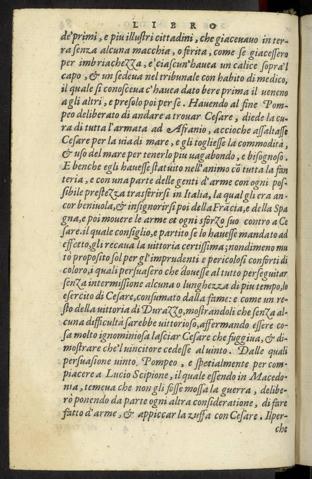 LIBRO
de' primi, e piu illustri cittadini, che giaceuano in ter-
ra senza alcuna macchia, o ferita, come se giacessero
per imbriachezza, e ciascun' hauea un calice sopra'l
capo, & un sedeua nel tribunale con habito di medico,
il quale si conosceua c'hauea dato bere prima il ueneno
a gli altri, e presolo poi per se. Hauendo al fine Pom-
peo deliberato di andare a trouar Cesare, diede la cu-
ra di tutta l'armata ad Affranio, accioche assaltasse
Cesare per la via di mare, e gli togliesse la commodità,
& uso del mare per tenerlo piu uagabondo, e bisognoso.
E benche egli hauesse statuito nell'animo cō tutta la fan
teria, e con una parte delle genti d'arme con ogni pos-
sibile prestezza trasferirsi in Italia, la qual gli era an-
cor beniuola, & insignorirsi poi della Frācia, e della Spa
gna, e poi mouere le arme et ogni sforzo suo contro a Ce
sare. il quale consiglio, e partito se lo hauesse mandato ad
effetto, gli recaua la uittoria certissima; nondimeno mu
tò proposito sol per gl'imprudenti e pericolosi conforti di
coloro, i quali persuasero che douesse al tutto perseguitar
senza intermissione alcuna o lunghezza di piu tempo, lo
esercito di Cesare, consumato dalla fame: e come un re-
sto della uittoria di Durazzo, mostrandoli che senza al-
cuna difficultà sarebbe uittorioso, affermando essere co-
sa molto ignominiosa lasciar Cesare che fuggiua, & di-
mostrare che'l uincitore cedesse al uinto. Dalle quali
persuasione uinto Pompeo, e spetialmente per com-
piacere a Lucio Scipione, il quale essendo in Macedo-
nia, temeua che non gli fosse mossa la guerra, delibe-
rò ponendo da parte ogni altra consideratione, di fare
fatto d'arme, & appiccar la zuffa con Cesare. Ilper-
che